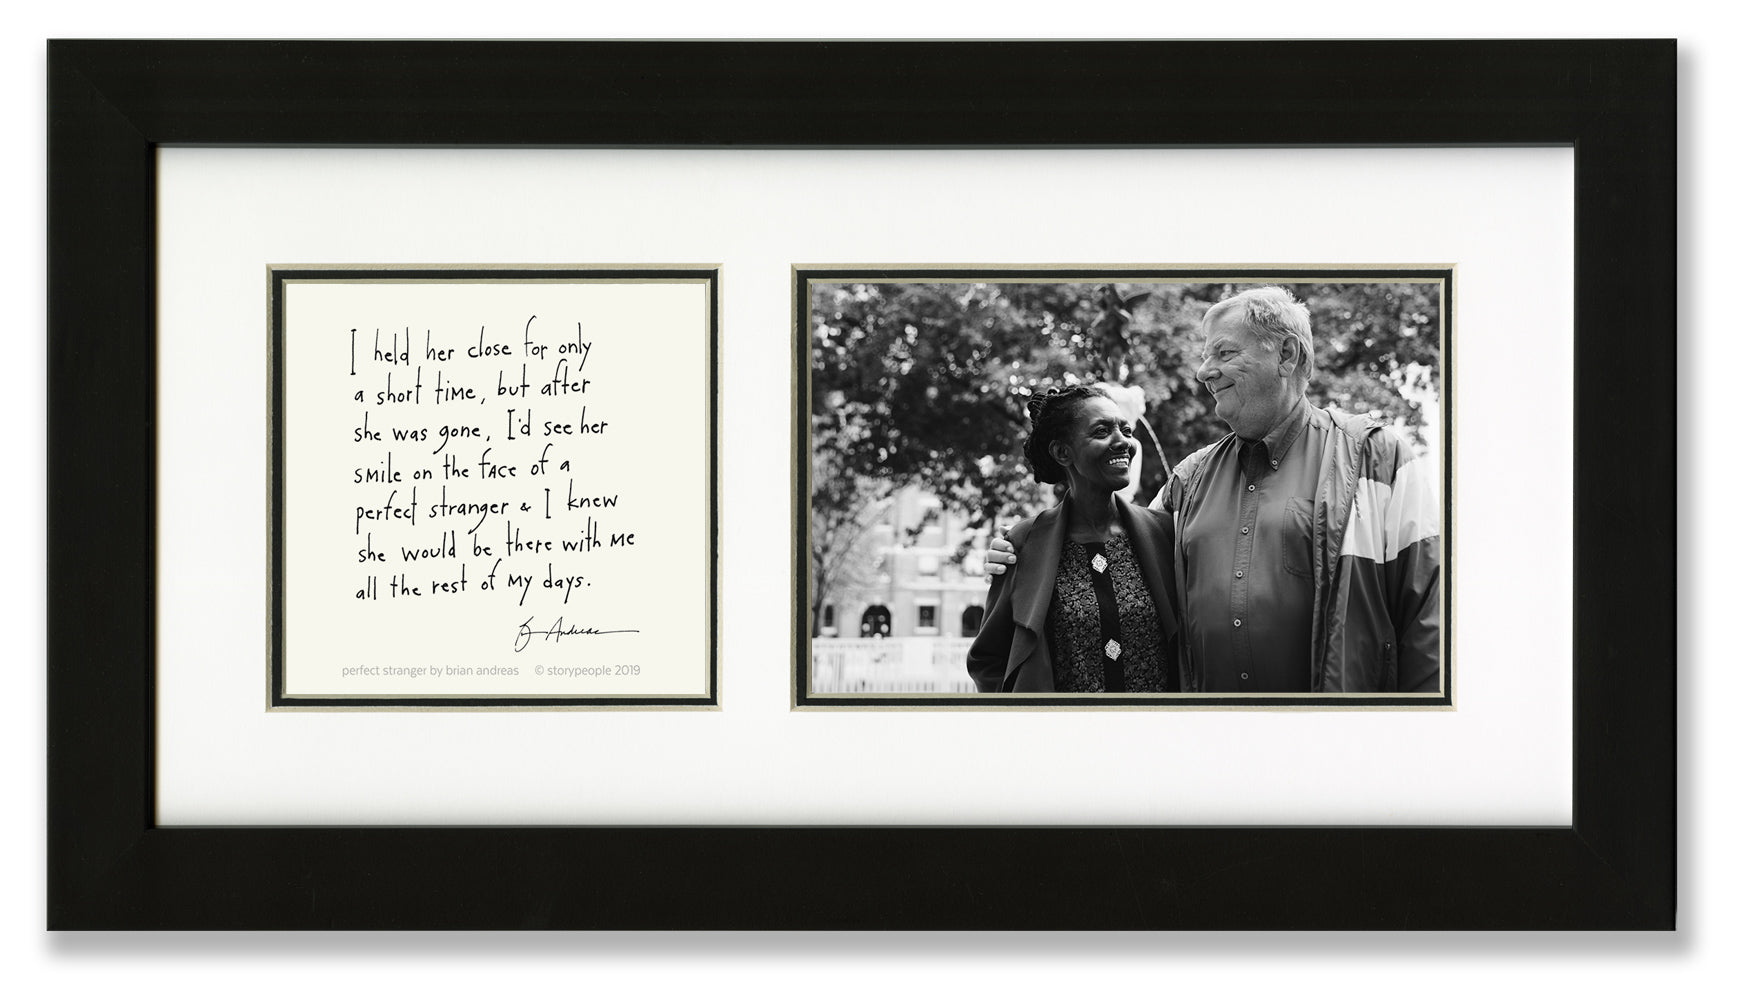 I held her close for only
a short time, but after
she was gone, I'd see her
smile on the face of a
perfect stranger & I knew
she would be there with me
all the rest of my days.
B Andreas
perfect stranger by brian andreas © storypeople 2019